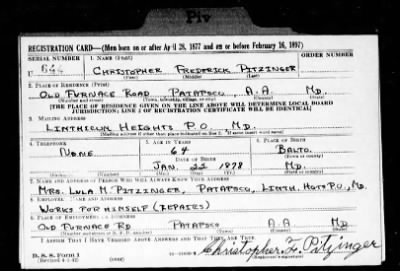 Piv
REGISTRATION CARD—(Men born on or after April 28, 1877 and on or before February 16, 1897)
SERIAL NUMBER 1. NAME (Print) ORDER NUMBER
U 644 CHRISTOPHER FREDERICK PITZINGER
(First) (Middle) (Last)
2. PLACE OF RESIDENCE (Print)
OLD FURNACE ROAD PATAPSCO, A.A. MD.
(Number and street) (Town, township, village, or city) (County) (State)
[THE PLACE OF RESIDENCE GIVEN ON THE LINE ABOVE WILL DETERMINE LOCAL BOARD
JURISDICTION; LINE 2 OF REGISTRATION CERTIFICATE WILL BE IDENTICAL]
3. MAILING ADDRESS
LINTHICUM HEIGHTS P.O. MD.
[Mailing address if other than place indicated on line 2. If same insert word same]
4. TELEPHONE 5. AGE IN YEARS 6. PLACE OF BIRTH
NONE 64 BALTO.
DATE OF BIRTH (Town or county)
JAN. 22 1878 MD.
(Mo.) (Day) (Yr.) (State or country)
7. NAME AND ADDRESS OF PERSON WHO WILL ALWAYS KNOW YOUR ADDRESS
MRS. LULA M. PITZINGER, PATAPSCO, LINTH. HGTS P.O., MD.
8. EMPLOYER'S NAME AND ADDRESS
WORKS FOR HIMSELF (REPAIRS)
9. PLACE OF EMPLOYMENT OR BUSINESS
OLD FURNACE RD PATAPSCO A.A MD.
(Number and street or R. F. D. number) (Town) (County) (State)
I AFFIRM THAT I HAVE VERIFIED ABOVE ANSWERS AND THAT THEY ARE TRUE.
D. S. S. Form 1
(Revised 4-1-42) Christopher F. Pitzinger